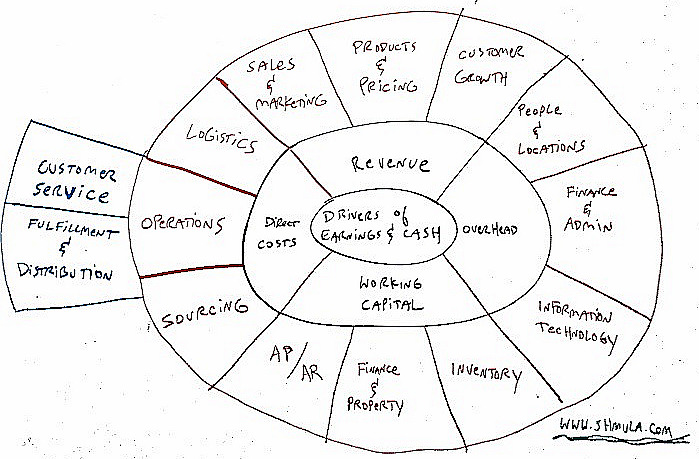 SALES
&
MARKETING
PRODUCTS
&
PRICING
CUSTOMER
GROWTH
PEOPLE
&
LOCATIONS
LOGISTICS
REVENUE
CUSTOMER
SERVICE
FINANCE
&
ADMIN
OPERATIONS
DIRECT
COSTS
DRIVERS of
EARNINGS & CASH
OVERHEAD
FULFILLMENT
&
DISTRIBUTION
WORKING
CAPITAL
SOURCING
INFORMATION
TECHNOLOGY
AP/
AR
FINANCE
&
PROPERTY
INVENTORY
WWW.SHMULA.COM